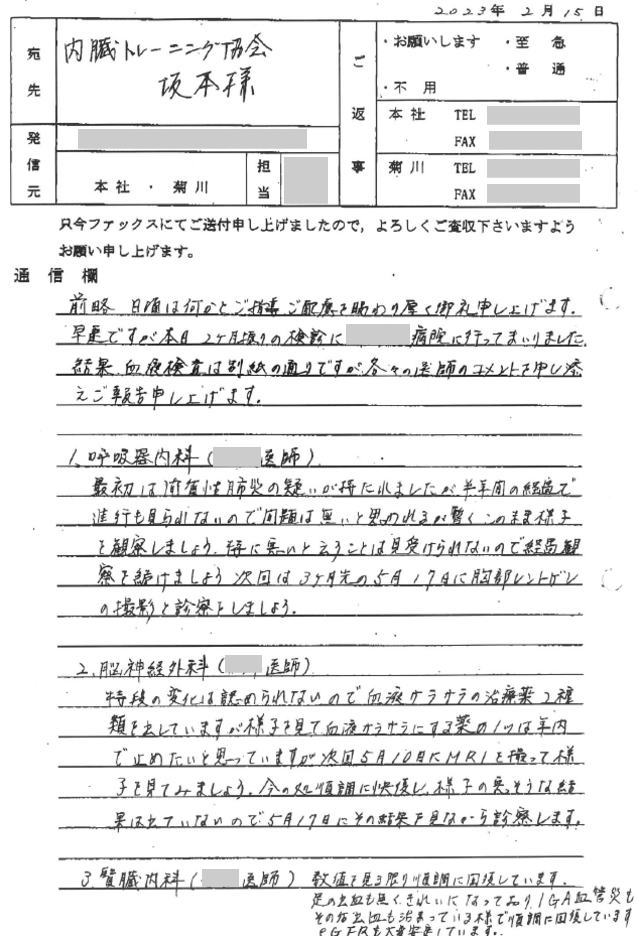 2023年 2月 15日
宛先
内臓トレーニング協会
坂本様
ご返事
・お願いします ・至 急
・普 通
・不 用
発信元
本社 ・ 菊川
担当
本社 TEL
FAX
菊川 TEL
FAX
只今ファックスにてご送付申し上げましたので，よろしくご査収下さいますよう
お願い申し上げます。
通 信 欄
前略 日頃は何かとご指導ご配慮を賜わり厚く御礼申し上げます.
早速ですが本日2ヶ月振りの検診に 病院に行ってまいりました.
結果、血液検査は別紙の通りですが各々の医師のコメントを申し添
えご報告申し上げます。
1、呼吸器内科 ( 医師)
最初は間質性肺炎の疑いが持たれましたが半年間の経過で
進行も見られないので問題は無いと思われるが暫くこのまま様子
を観察しましょう. 特に悪いと云うことは見受けられないので経過観
察を続けましょう 次回は3ヶ月先の5月17日に胸部レントゲン
の撮影と診察をしましょう.
2、脳神経外科 ( 医師)
特段の変化は認められないので血液サラサラの治療薬2種
類を出していますが様子を見て血液サラサラにする薬の1つは年内
で止めたいと思っていますが次回5月10日にMRIを撮って様
子を見てみましょう. 今の処順調に快復し、様子の悪そうな結
果は出ていないので5月17日にその結果を見ながら診察します。
3 腎臓内科 ( 医師) 数値を見る限り順調に回復しています.
足の出血も無くきれいになっており、IGA血管炎も
その為出血も治まっている様で順調に回復しています
eGFRも大変安定しています..